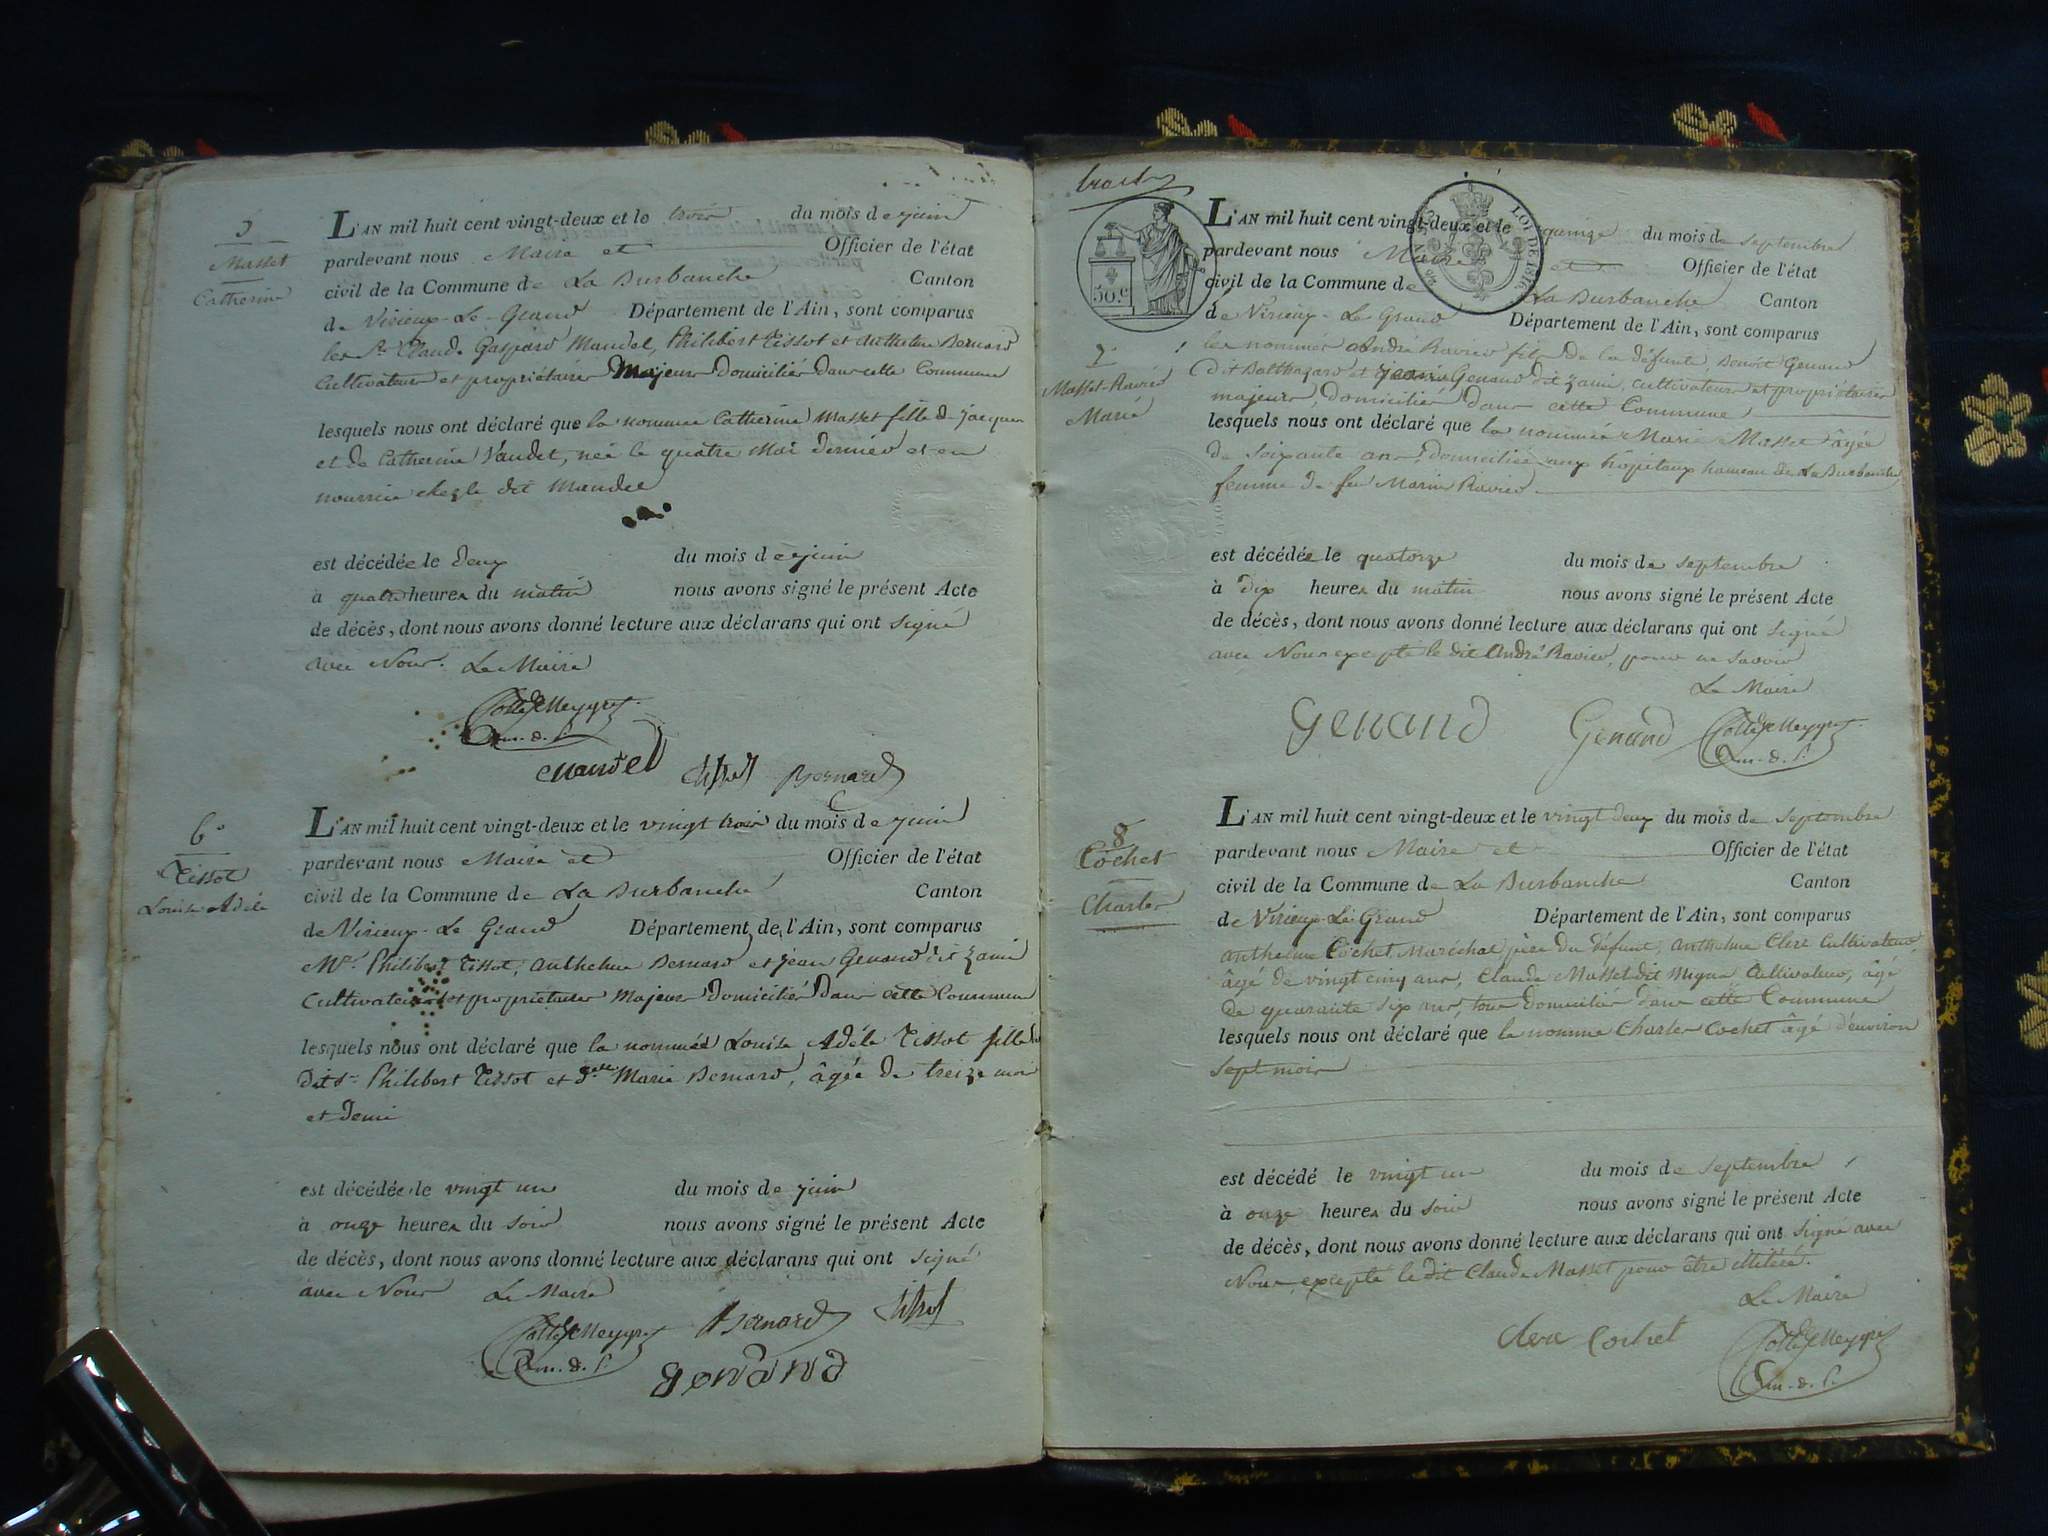 5
Masset
Catherine
L'AN mil huit cent vingt-deux et le trois du mois de juin
pardevant nous Maire et Officier de l'état
civil de la Commune de La Burbanche Canton
de Virieux-Le-Grand Département de l'Ain, sont comparus
les Sr. Claude Gaspard Mandel, Philibert Tissot et Anthelme Bernard
Cultivateurs et propriétaires Majeurs Domiciliés Dans cette Commune
lesquels nous ont déclaré que la nommée Catherine Masset fille de Jacques
et de Catherine Vaudet, née le quatre Mai Dernier et en
nourrice chez le dit Mandel
est décédée le Deux du mois de juin
à quatre heures du matin nous avons signé le présent Acte
de décès, dont nous avons donné lecture aux déclarans qui ont signé
avec Nous. Le Maire
mandel Tissot Bernard
6°
Tissot
Louise Adéle
L'AN mil huit cent vingt-deux et le vingt trois du mois de juin
pardevant nous Maire et Officier de l'état
civil de la Commune de La Burbanche Canton
de Virieux-Le Grand Département de l'Ain, sont comparus
Mrs. Philibert Tissot, Anthelme Bernard et Jean Genand dit Zami
Cultivateurs et propriétaires Majeurs Domiciliés Dans cette Commune
lesquels nous ont déclaré que la nommée Louise Adéle Tissot fille du
Dit Sr. Philibert Tissot et Marie Bernard, âgée de treize mois
et Demi
est décédée le vingt un du mois de juin
à onze heures du soir nous avons signé le présent Acte
de décès, dont nous avons donné lecture aux déclarans qui ont signé
avec Nous Le Maire
Bernard Tissot
genand
50.c
LOI DE 1816
L'AN mil huit cent vingt-deux et le quinze du mois de septembre
pardevant nous Maire et Officier de l'état
civil de la Commune de La Burbanche Canton
de Virieux-Le Grand Département de l'Ain, sont comparus
7
Masset-Ravier
Marie
les nommés André Ravier fils de la défunte, Benoit Genand
Dit Balthazard et Genand dit Zami, cultivateurs et propriétaires
majeurs, Domiciliés Dans cette Commune
lesquels nous ont déclaré que la nommée Marie Masset âgée
de soixante ans, Domiciliée aux hôpitaux hameau de La Burbanche,
femme de feu Marin Ravier
est décédée le quatorze du mois de septembre
à dix heures du matin nous avons signé le présent Acte
de décès, dont nous avons donné lecture aux déclarans qui ont signé
avec Nous excepté le dit André Ravier, pour ne savoir
Le Maire
Genand Genand
8
Cochet
Charles
L'AN mil huit cent vingt-deux et le vingt deux du mois de septembre
pardevant nous Maire et Officier de l'état
civil de la Commune de La Burbanche Canton
de Virieux-Le Grand Département de l'Ain, sont comparus
Anthelme Cochet, Maréchal père du défunt, Anthelme Clerc Cultivateur,
âgé de vingt cinq ans, Claude Masset dit Cultivateur, âgé
de quarante six ans, tous Domiciliés dans cette Commune
lesquels nous ont déclaré que le nommé Charles Cochet âgé d'environ
sept mois
est décédé le vingt un du mois de septembre
à onze heures du soir nous avons signé le présent Acte
de décès, dont nous avons donné lecture aux déclarans qui ont signé avec
Nous excepté le dit Claude Masset pour être illitéré.
Le Maire
Cochet